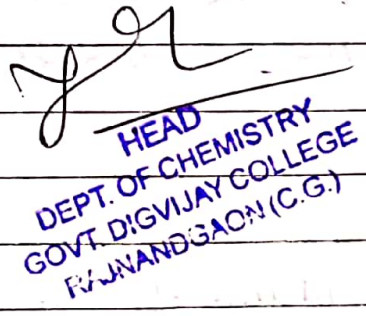 HEAD
DEPT. OF CHEMISTRY
GOVT. DIGVIJAY COLLEGE
RAJNANDGAON (C.G.)